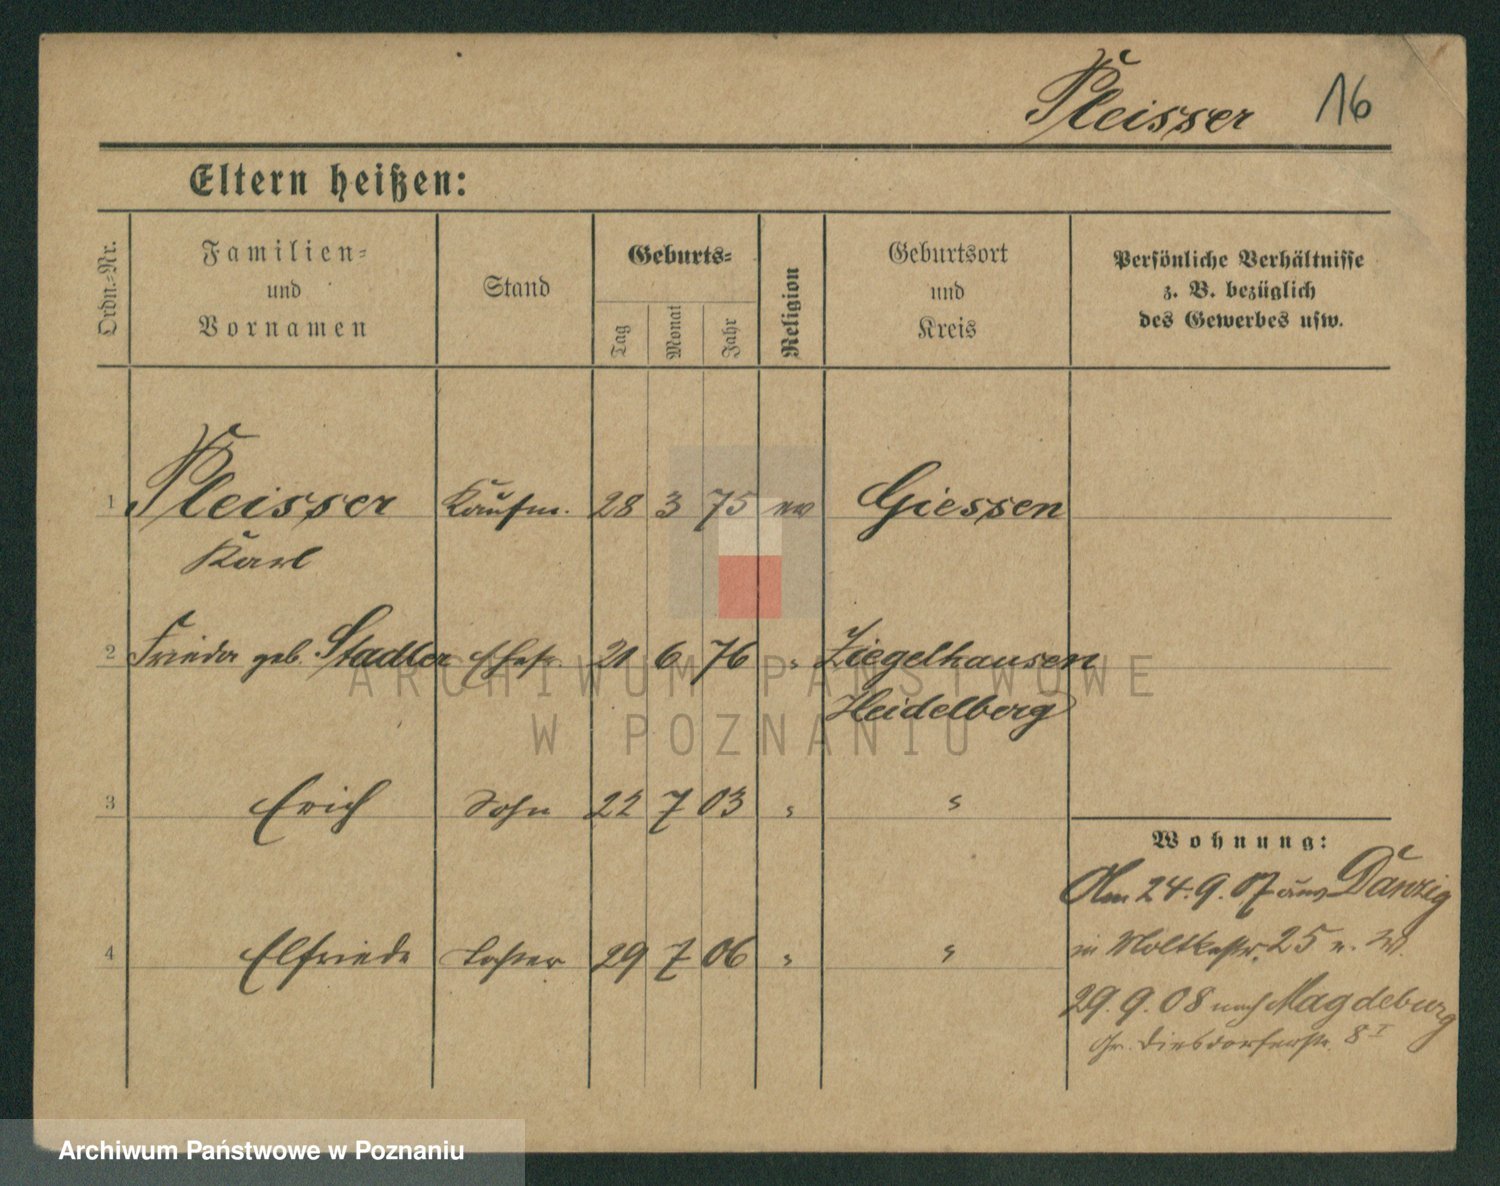 Pleisser 16
Eltern heißen:
Ordn.-Nr. Familien- und Vornamen Stand Geburts- Tag Monat Jahr Religion Geburtsort und Kreis Persönliche Verhältnisse z. B. bezüglich des Gewerbes usw.
1 Pleisser Kaufm. 28 3 75 ev Giessen
Karl
2 Frieda geb. Stadler Ehefr. 21 6 76 " Ziegelhausen
Heidelberg
3 Erich Sohn 22 7 03 " "
Wohnung:
Am 24.9.07 aus Danzig
4 Elfriede Tochter 29 7 06 " "
in Moltkestr. 25 n. W.
29.9.08 nach Magdeburg
Gr. Diesdorferstr. 8 I
ARCHIWUM PAŃSTWOWE
W POZNANIU
Archiwum Państwowe w Poznaniu